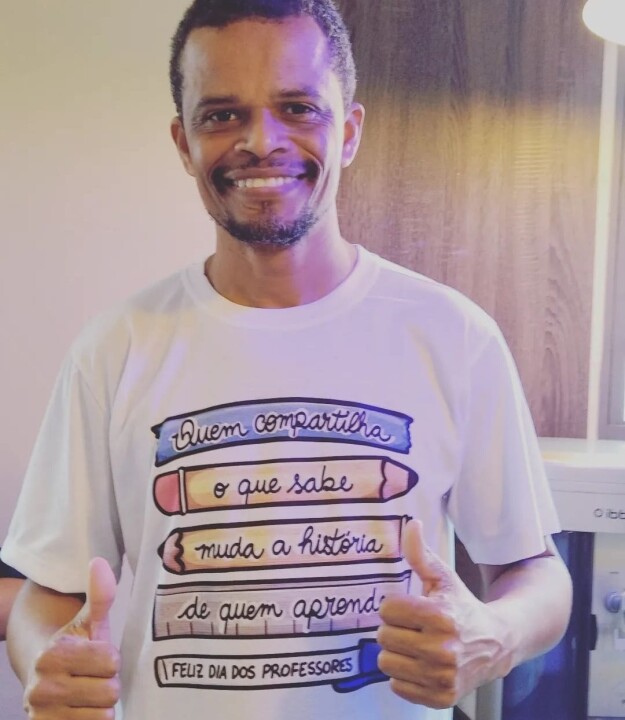 Quem compartilha
o que sabe
muda a história
de quem aprende
FELIZ DIA DOS PROFESSORES